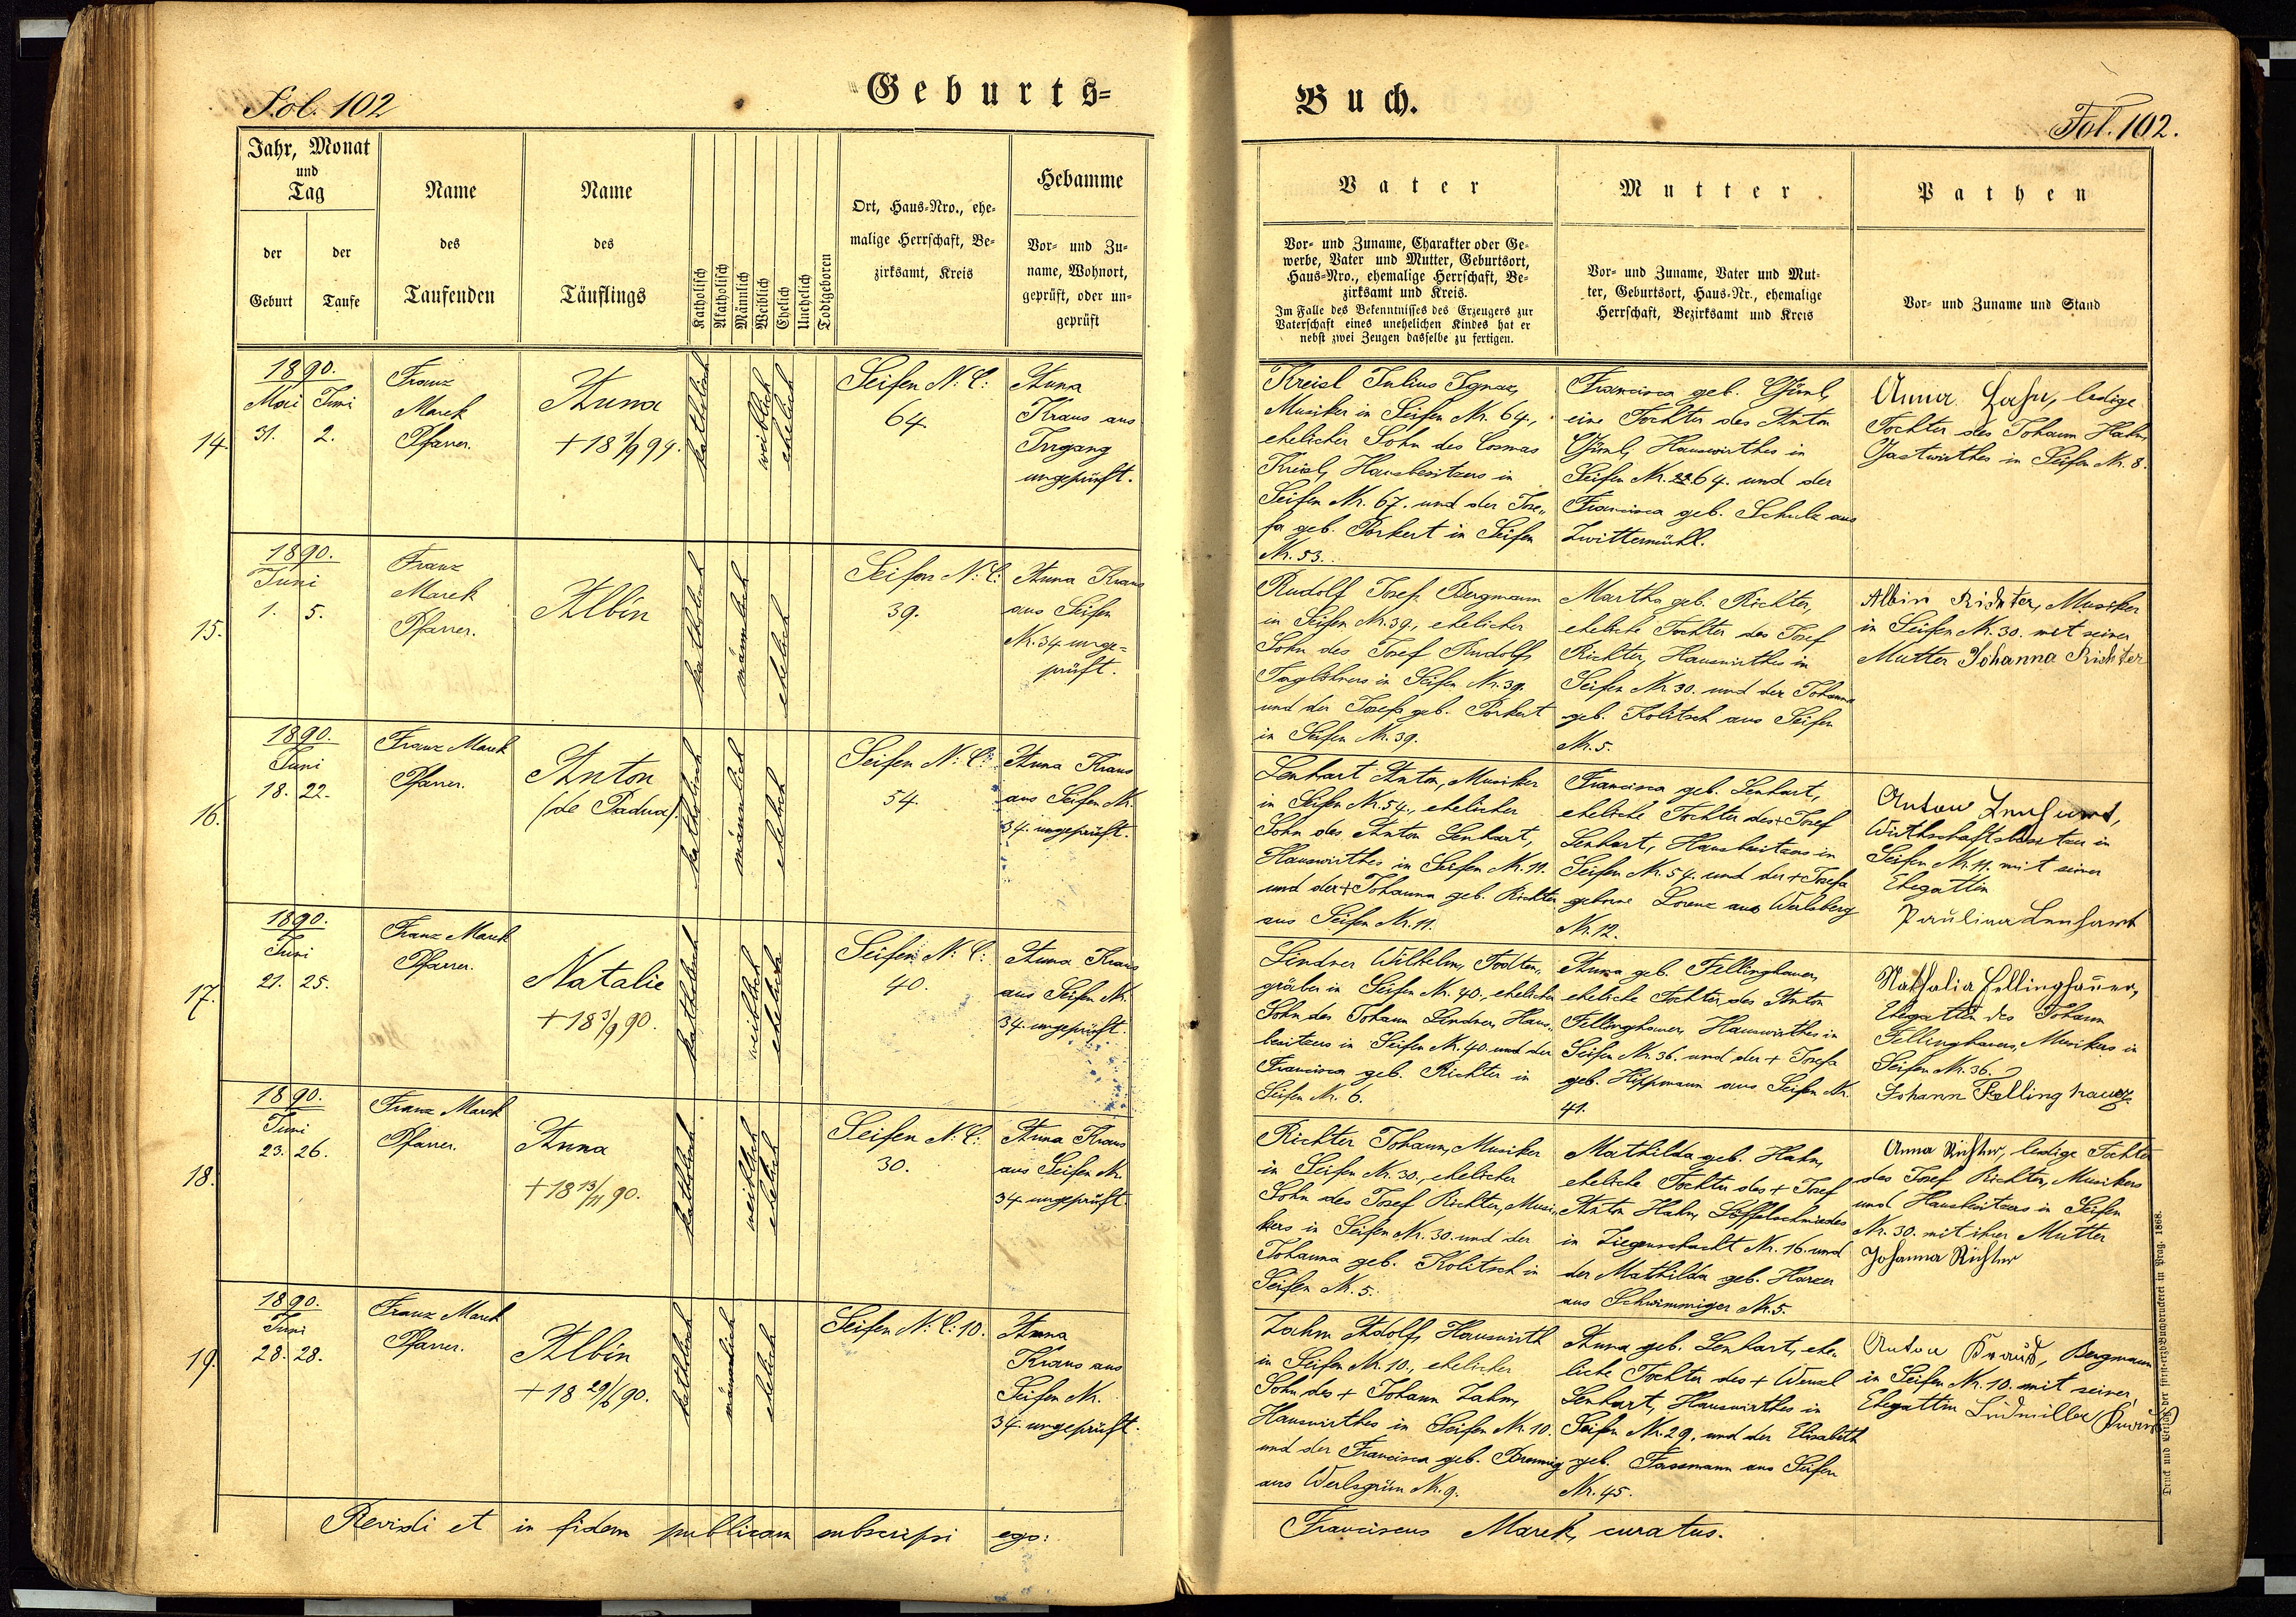 Fol. 102
Geburts=
Jahr, Monat
und
Tag
der
Geburt
der
Taufe
Name
des
Taufenden
Name
des
Täuflings
Katholisch
Akatholisch
Männlich
Weiblich
Ehelich
Unehelich
Todtgeboren
Ort, Haus=Nro., ehe=
malige Herrschaft, Be=
zirksamt, Kreis
Hebamme
Vor= und Zu=
name, Wohnort,
geprüft, oder un=
geprüft
14.
1890.
Mai Juni
31. 2.
Franz
Marek
Pfarrer.
Anna
katholisch
weiblich
ehelich
Seifen N: C:
64.
Anna
Kraus aus
Irrgang
ungeprüft.
15.
1890.
Juni
1. 5.
Franz
Marek
Pfarrer.
Albin
katholisch
männlich
ehelich
Seifen N: C:
39.
Anna Kraus
aus Seifen
Nr. 34 unge=
prüft.
16.
1890.
Juni
18. 22.
Franz Marek
Pfarrer.
Anton
(de Padua).
katholisch
männlich
ehelich
Seifen N: C:
54.
Anna Kraus
aus Seifen Nr.
34. ungeprüft.
17.
1890.
Juni
21. 25.
Franz Marek
Pfarrer.
Natalie
+ 18 3/9 90.
katholisch
weiblich
ehelich
Seifen N: C:
40.
Anna Kraus
aus Seifen Nr.
34. ungeprüft.
18.
1890.
Juni
23. 26.
Franz Marek
Pfarrer.
Anna
+ 18 13/11 90.
katholisch
weiblich
ehelich
Seifen N: C:
30.
Anna Kraus
aus Seifen Nr.
34. ungeprüft.
19.
1890.
Juni
28. 28.
Franz Marek
Pfarrer.
Albin
+ 18 29/6 90.
katholisch
männlich
ehelich
Seifen N: C: 10.
Anna
Kraus aus
Seifen Nr.
34. ungeprüft.
Revidi et in fidem publicam subscripsi ego:
Buch.
Fol. 102.
Vater
Vor= und Zuname, Charakter oder Ge=
werbe, Vater und Mutter, Geburtsort,
Haus=Nro., ehemalige Herrschaft, Be=
zirksamt und Kreis.
Im Falle des Bekenntnisses des Erzeugers zur
Vaterschaft eines unehelichen Kindes hat er
nebst zwei Zeugen dasselbe zu fertigen.
Mutter
Vor= und Zuname, Vater und Mut=
ter, Geburtsort, Haus=Nr., ehemalige
Herrschaft, Bezirksamt und Kreis
Pathen
Vor= und Zuname und Stand
Kreisl Julius Ignaz,
Musiker in Seifen Nr. 64.,
ehelicher Sohn des Cosmas
Kreisl, Hausbesitzers in
Seifen Nr. 67. und der Jose„
fa geb. Porkert in Seifen
Nr. 53.
Francisca geb.
eine Tochter des Anton
Hauswirthes in
Seifen Nr. 64. und der
Francisca geb. Schulz aus
Zwittermühl.
Anna Hahn, ledige
Tochter des Johann Hahn,
Gastwirthes in Seifen Nr. 8.
Rudolf Josef, Bergmann
in Seifen Nr. 39., ehelicher
Sohn des Josef Rudolf,
Taglöhners in Seifen Nr. 39.
und der Josefa geb. Porkert
in Seifen Nr. 39.
Martha geb. Richter,
eheliche Tochter des Josef
Richter, Hauswirthes in
Seifen Nr. 30. und der Johanna
geb. Kolitsch aus Seifen
Nr. 5.
Albin Richter, Musiker
in Seifen Nr. 30. mit seiner
Mutter Johanna Richter
Lenhart Anton, Musiker
in Seifen Nr. 54., ehelicher
Sohn des Anton Lenhart,
Hauswirthes in Seifen Nr. 11.
und der + Johanna geb. Richter
aus Seifen Nr. 11.
Francisca geb. Lenhart,
eheliche Tochter des + Josef
Lenhart, Hausbesitzers in
Seifen Nr. 54. und der + Josefa
geborne Lorenz aus Werlsberg
Nr. 12.
Anton Lenhart,
Wirthschaftsbesitzer in
Seifen Nr. 11. mit seiner
Ehegattin
Paulina Lenhart
Lindner Wilhelm, Todten„
gräber in Seifen Nr. 40., ehelicher
Sohn des Johann Lindner, Haus„
besitzers in Seifen Nr. 40. und der
Francisca geb. Richter in
Seifen Nr. 6.
Anna geb. Fellinghauer,
eheliche Tochter des Anton
Fellinghauer, Hauswirthes in
Seifen Nr. 36. und der + Josefa
geb. Hippmann aus Seifen Nr.
41.
Nathalia Fellinghauer,
Ehegattin des Johann
Fellinghauer, Musikers in
Seifen Nr. 36.
Johann Fellinghauer
Richter Johann, Musiker
in Seifen Nr. 30., ehelicher
Sohn des Josef Richter, Musi„
kers in Seifen Nr. 30. und der
Johanna geb. Kolitsch in
Seifen Nr. 5.
Mathilda geb. Hahn,
eheliche Tochter des + Josef
Anton Hahn, Löffelschmiedes
in Ziegenschacht Nr. 16. und
der Mathilda geb. Harzer
aus Schwimmiger Nr. 5.
Anna Richter, ledige Tochter
des Josef Richter, Musikers
und Hausbesitzers in Seifen
Nr. 30. mit ihrer Mutter
Johanna Richter
Zahm Adolf, Hauswirth
in Seifen Nr. 10., ehelicher
Sohn des + Johann Zahm,
Hauswirthes in Seifen Nr. 10.
und der Francisca geb.
aus Werlsgrün Nr. 9.
Anna geb. Lenhart, ehe„
liche Tochter des + Wenzel
Lenhart, Hauswirthes in
Seifen Nr. 29. und der Elisabeth
geb. Fassmann aus Seifen
Nr. 45.
Anton Kraus, Bergmann
in Seifen Nr. 10. mit seiner
Ehegattin Ludmilla Kraus
Franciscus Marek, curatus.
Druck und Verlag der fürst=erzb. Buchdruckerei in Prag. 1868.